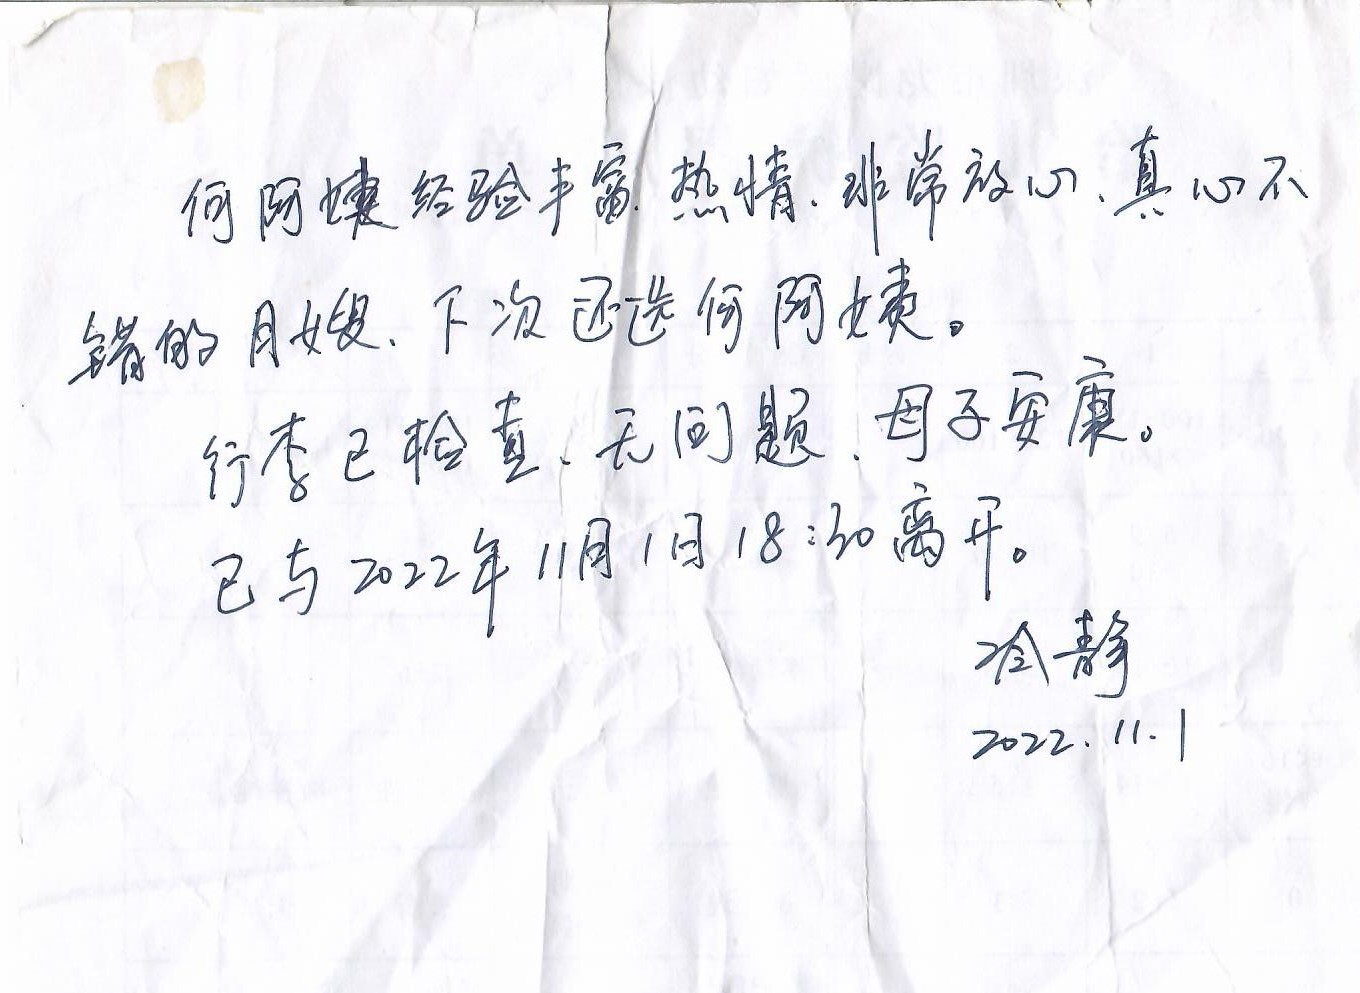 何阿姨经验丰富、热情、非常放心、真心不
错的月嫂、下次还选何阿姨。
行李已检查、无问题、母子安康。
已与2022年11月1日18:30离开。
冷静
2022.11.1